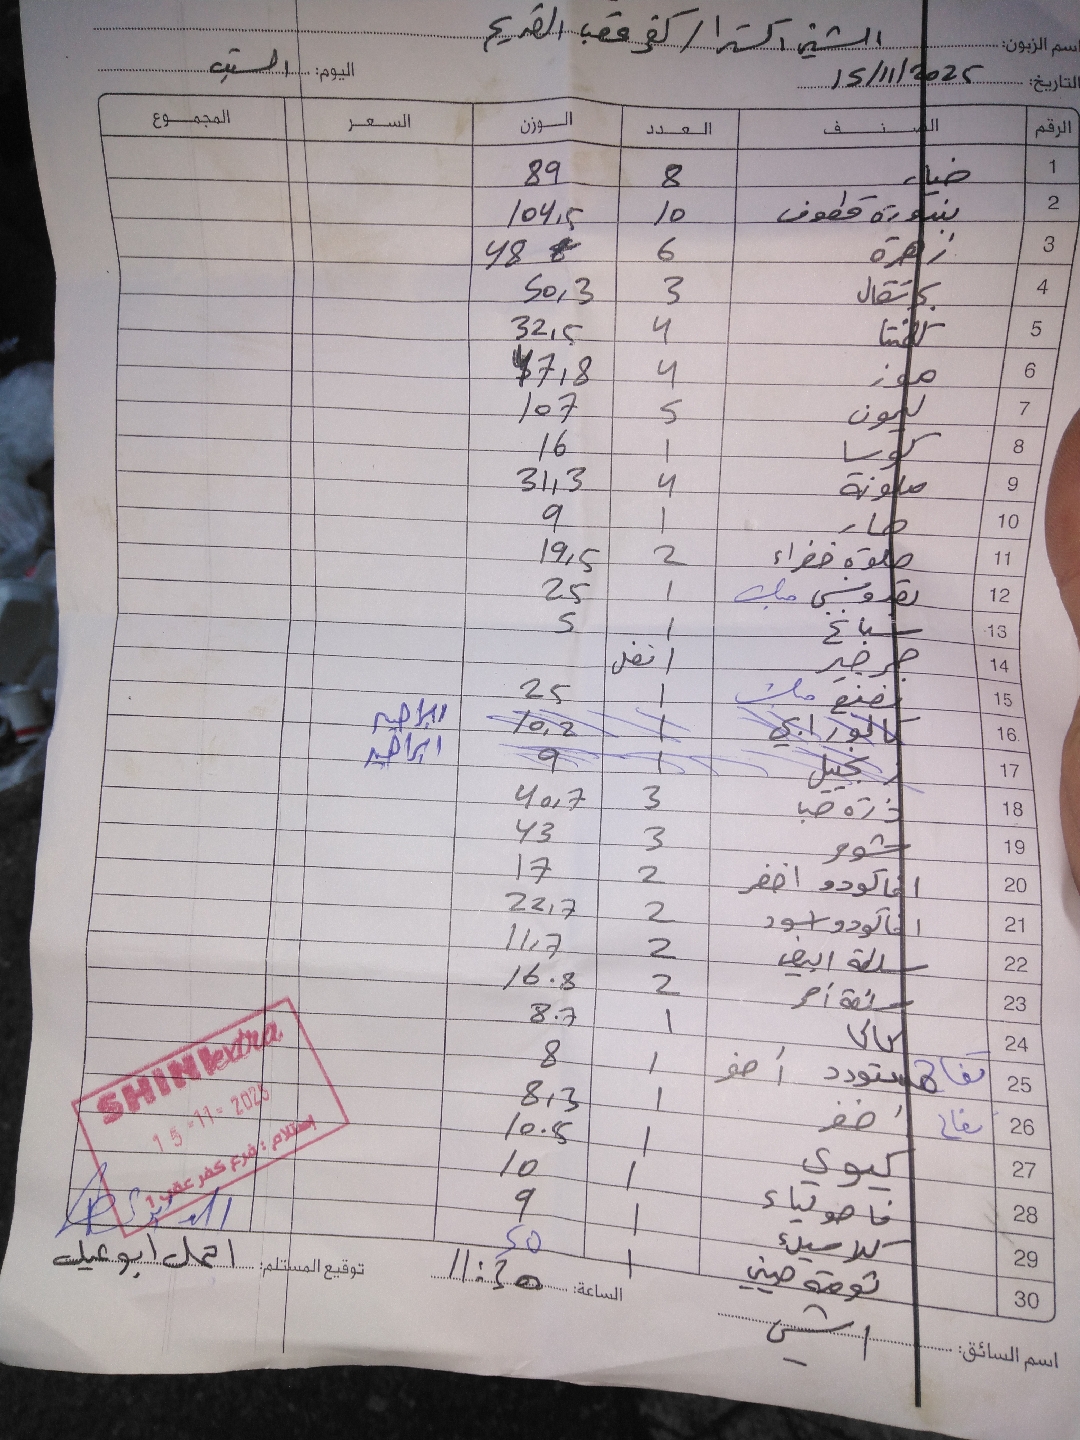 اسم الزبون: الشني اكسترا / كفر عقب القديم
التاريخ: 15/11/2025 اليوم: السبت
الرقم الصنف العدد الوزن السعر المجموع
1 خيار 8 89
2 بندورة قطوف 10 104,5
3 زهرة 6 48
4 برتقال 3 50,3
5 كلمنتينا 4 32,5
6 موز 4 47,8
7 ليمون 5 107
8 كوسا 1 16
9 ملونة 4 31,3
10 حار 1 9
11 حلوة خضراء 2 19,5
12 بقدونس 1 25
13 سبانخ 1 5
14 جرجير 1
15 نعنع 1 25
16 كالورابي 1 10,2 ابراهيم
17 زنجبيل 1 9 ابراهيم
18 ذرة حبا 3 40,7
19 شومر 3 43
20 افاكودو اخضر 2 17
21 افاكودو اسود 2 22,7
22 سلطة ابيض 2 11,7
23 سلطة أحمر 2 16.8
24 1 8.7
25 تفاح مستورد أصفر 1 8
26 تفاح أخضر 1 8,3
27 كيوي 1 10.5
28 فاصولياء 1 10
29 9
30 ثومة صيني 1 50
SHINI extra
15-11-2025
إستلام : فرع كفر عقب 1
توقيع المستلم: الساعة: 11:30
اسم السائق: